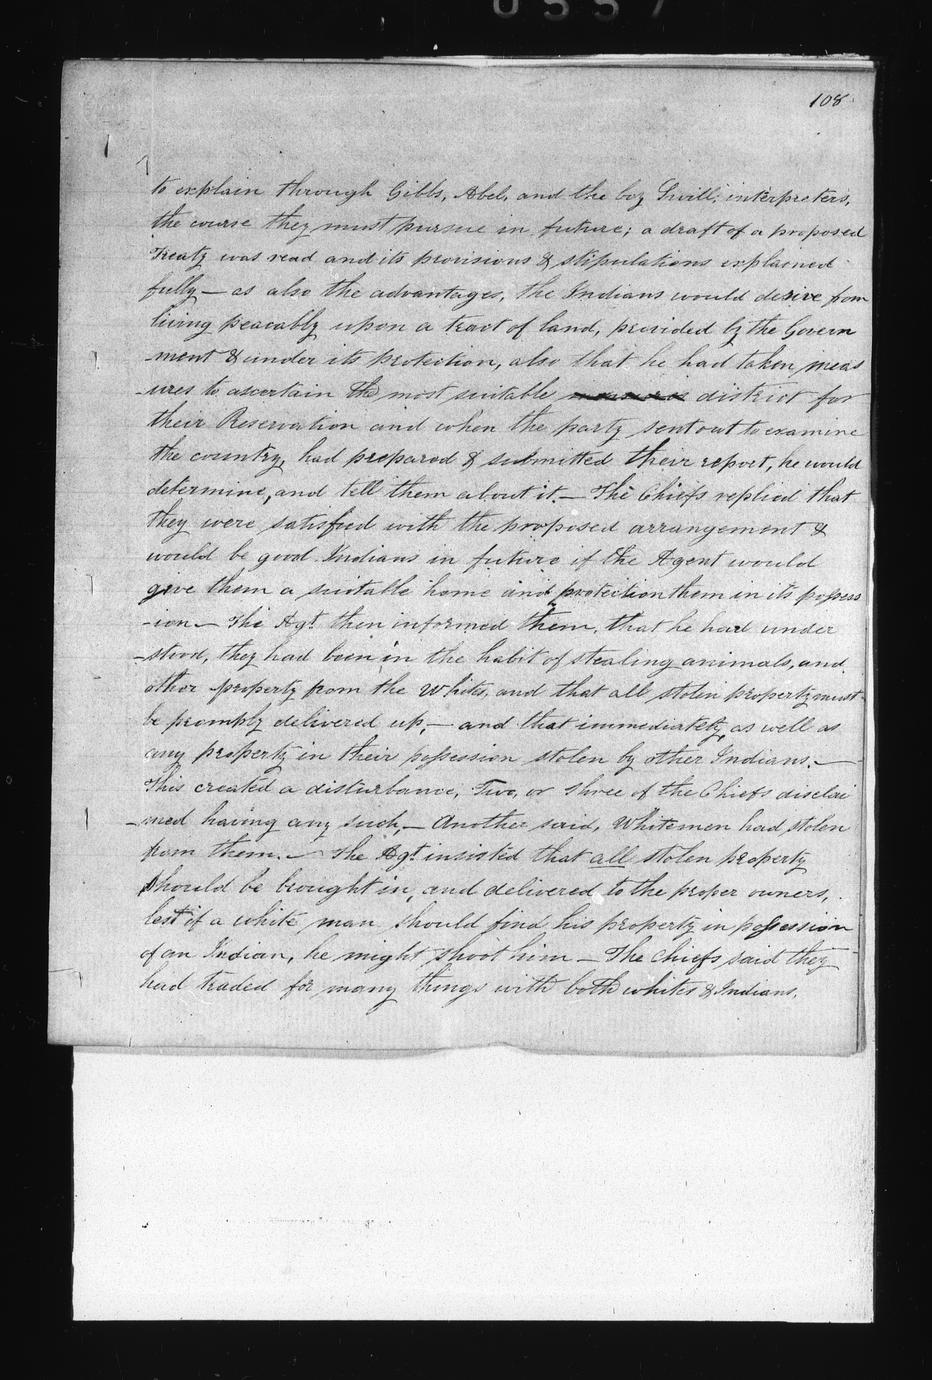 0557
108
to explain through Gibbs, Abel, and the boy Swill; interpreters,
the course they must pursue in future; a draft of a proposed
Treaty was read and its provisions & stipulations explained
fully — as also the advantages, the Indians would desire from
living peacably upon a tract of land, provided by the Govern
-ment & under its protection, also that he had taken meas
-ures to ascertain the most suitable district for
their Reservation and when the party sent out to examine
the country, had prepared & submitted their report, he would
determine, and tell them about it. — The Chiefs replied that
they were satisfied with the proposed arrangement &
would be good Indians in future if the Agent would
give them a suitable home and protection them in its possess
-ion — The Agt. then informed them, that he had under
-stood, they had been in the habit of stealing animals, and
other property from the Whites, and that all stolen property must
be promply delivered up, — and that immediately, as well as
any property in their possession stolen by other Indians. —
This created a disturbance, Two, or three of the Chiefs disclai
-med having any such, — Another said, Whitemen had stolen
from them. — The Agt. insisted that all stolen property
should be brought in, and delivered to the proper owners,
lest if a white man should find his property in possession
of an Indian, he might shoot him — The Chiefs said they
had traded for many things with both whites & Indians,